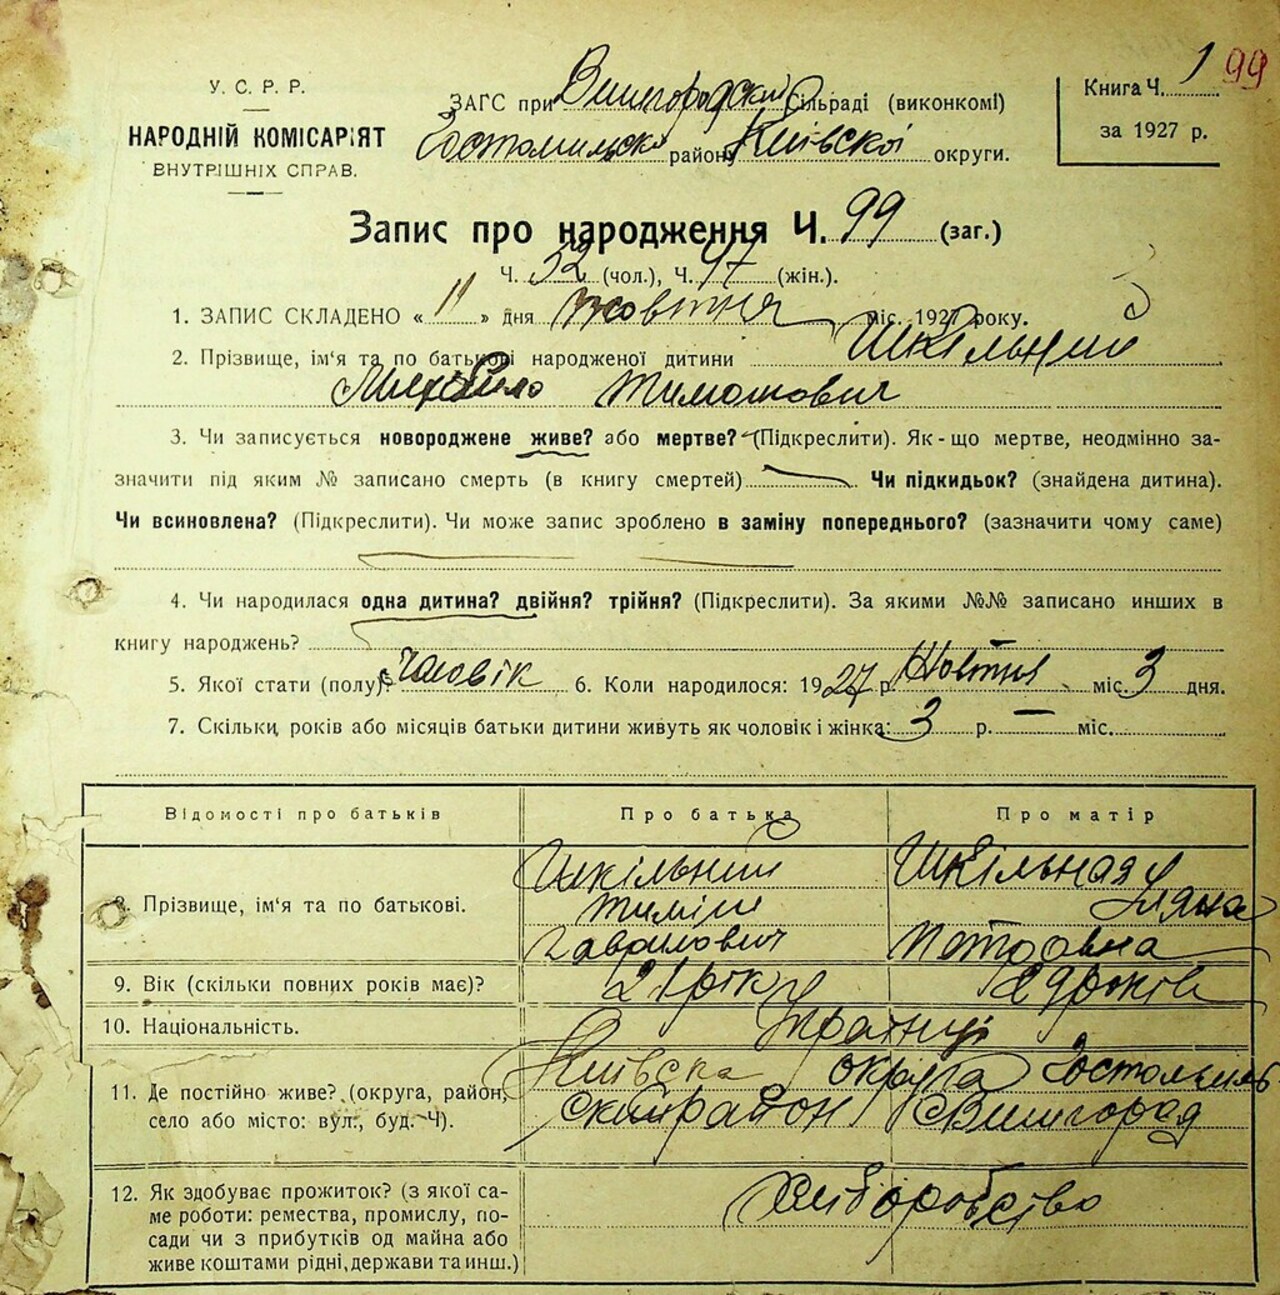 У. С. Р. Р.
НАРОДНІЙ КОМІСАРІЯТ
ВНУТРІШНІХ СПРАВ.
ЗАГС при Вишгородской сільраді (виконкомі)
Гостомильско району Київскої округи.
Книга Ч. 1
99
за 1927 р.
Запис про народження Ч. 99 (заг.)
Ч. 52 (чол.), Ч. 47 (жін.).
1. ЗАПИС СКЛАДЕНО « 11 » дня жовтня міс. 1927 року.
2. Прізвище, ім'я та по батькові народженої дитини Шкільний
Михайло Тимошович
3. Чи записується новороджене живе? або мертве? (Підкреслити). Як-що мертве, неодмінно за-
значити під яким № записано смерть (в книгу смертей) Чи підкидьок? (знайдена дитина).
Чи всиновлена? (Підкреслити). Чи може запис зроблено в заміну попереднього? (зазначити чому саме)
4. Чи народилася одна дитина? двійня? трійня? (Підкреслити). За якими №№ записано инших в
книгу народжень?
5. Якої стати (полу)? Чоловік 6. Коли народилося: 1927 р. Жовтня міс. 3 дня.
7. Скільки років або місяців батьки дитини живуть як чоловік і жінка: 3 р. — міс.
Відомості про батьків Про батька Про матір
8. Прізвище, ім'я та по батькові.
Шкільний
Тиміш
Шкільная
Петровна
9. Вік (скільки повних років має)? 21 рік
10. Національність.
11. Де постійно живе? (округа, район,
село або місто: вул., буд. Ч).
Київска округа Гостомиль
ский район с Вишгород
12. Як здобуває прожиток? (з якої са-
ме роботи: ремества, промислу, по-
сади чи з прибутків од майна або
живе коштами рідні, держави та инш.)
Хліборобство